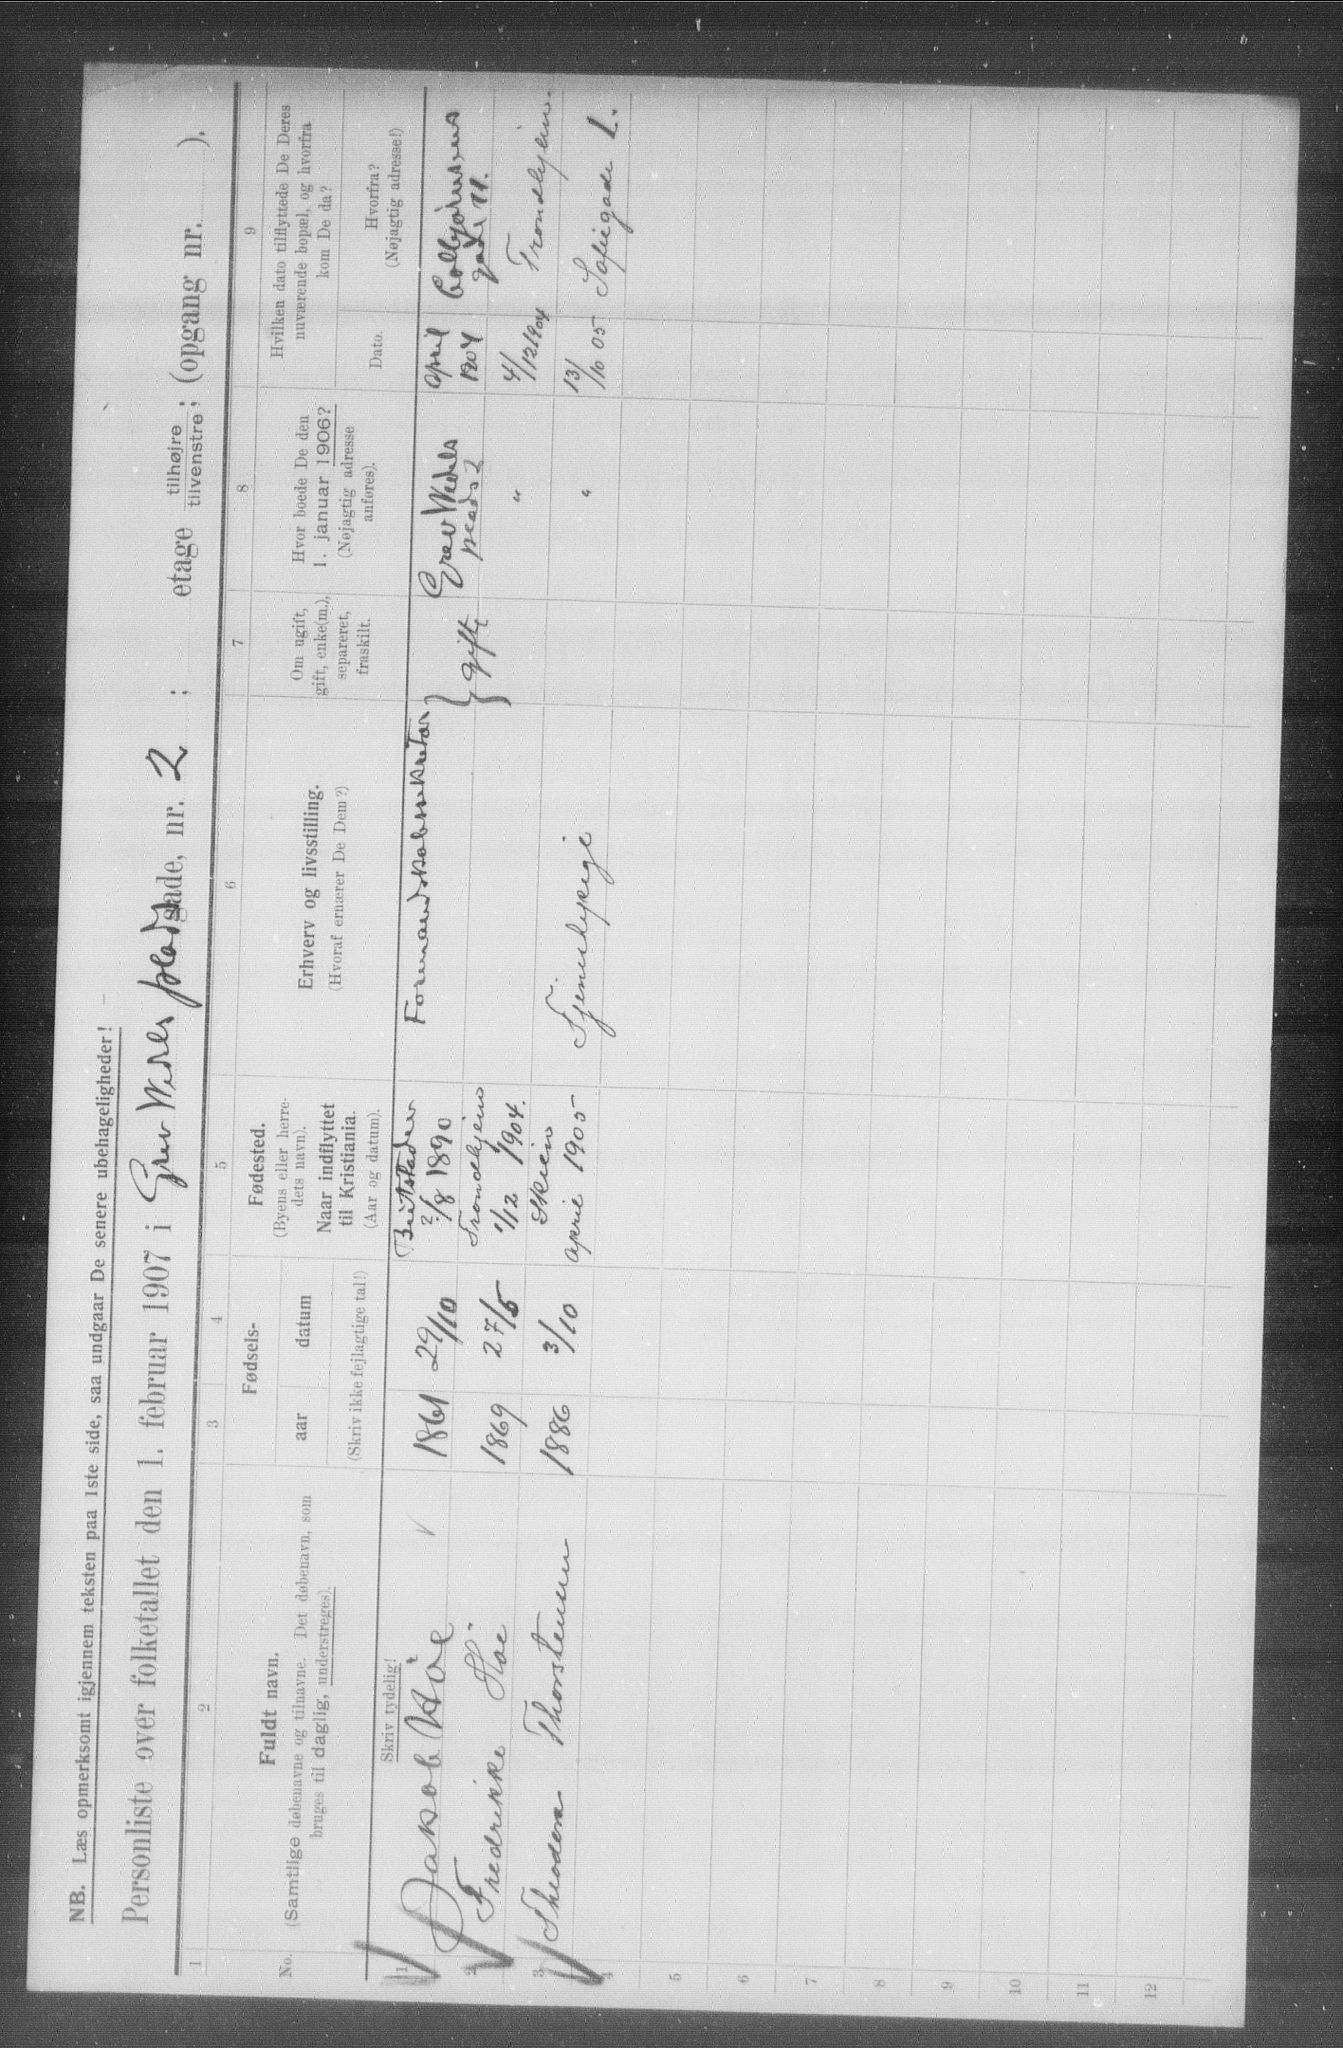 NB. Læs opmerksomt igjennem teksten paa 1ste side, saa undgaar De senere ubehageligheder!
Personliste over folketallet den 1. februar 1907 i Grev Wedels plads gade, nr. 2 ; etage tilhøjre tilvenstre ; (opgang nr. ).
1 2 3 4 5 6 7 8 9
No.
Fuldt navn.
(Samtlige døbenavne og tilnavne. Det døbenavn, som
bruges til daglig, understreges).
Skriv tydelig!
Fødsels-
aar datum
(Skriv ikke fejlagtige tal!)
Fødested.
(Byens eller herre-
dets navn).
Naar indflyttet
til Kristiania.
(Aar og datum).
Erhverv og livsstilling.
(Hvoraf ernærer De Dem?)
Om ugift,
gift, enke(m.),
separeret,
fraskilt.
Hvor boede De den
1. januar 1906?
(Nøjagtig adresse
anføres).
Hvilken dato tilflyttede De Deres
nuværende bopæl, og hvorfra
kom De da?
Dato.
Hvorfra?
(Nøjagtig adresse!)
1 Jakob Höe 1861 29/10 Beitstaden 2/8 1890 Formandskabssekretær } gifte Grev Wedels plads 2 April 1904 Colbjørnsens gade 11.
2 Fredrikke Höe 1869 27/5 Trondhjem 1/12 1904. " 4/12 1904 Trondhjem.
3 Theodora Thorstensen 1886 3/10 Skien april 1905 Tjenestepige " 13/10 05 Sofiegade 1.
4
5
6
7
8
9
10
11
12